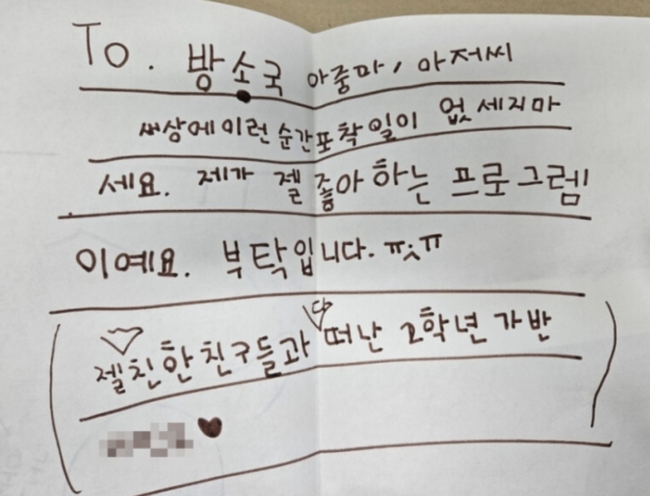 To. 방소국 아줌마, 아저씨
쌔상에이런 순간포착일이 없세지마
세요. 제가 젤 좋아하는 프로그렘
이예요. 부탁입니다. ㅠㅊㅠ
젤친한친구들과 다 떠난 2학년 가반
♥